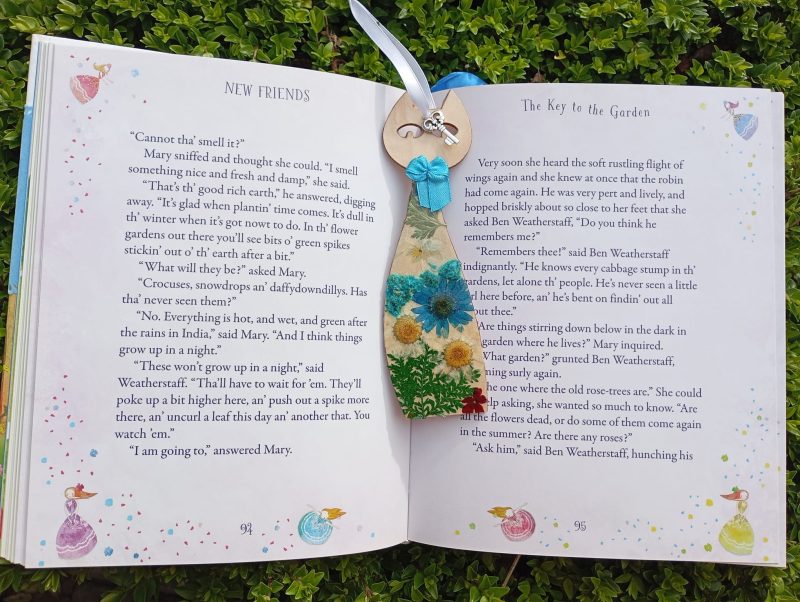 NEW FRIENDS
“Cannot tha’ smell it?”
Mary sniffed and thought she could. “I smell
something nice and fresh and damp,” she said.
“That’s th’ good rich earth,” he answered, digging
away. “It’s glad when plantin’ time comes. It’s dull in
th’ winter when it’s got nowt to do. In th’ flower
gardens out there you’ll see bits o’ green spikes
stickin’ out o’ th’ earth after a bit.”
“What will they be?” asked Mary.
“Crocuses, snowdrops an’ daffydowndillys. Has
tha’ never seen them?”
“No. Everything is hot, and wet, and green after
the rains in India,” said Mary. “And I think things
grow up in a night.”
“These won’t grow up in a night,” said
Weatherstaff. “Tha’ll have to wait for ’em. They’ll
poke up a bit higher here, an’ push out a spike more
there, an’ uncurl a leaf this day an’ another that. You
watch ’em.”
“I am going to,” answered Mary.
The Key to the Garden
Very soon she heard the soft rustling flight of
wings again and she knew at once that the robin
had come again. He was very pert and lively, and
hopped briskly about so close to her feet that she
asked Ben Weatherstaff, “Do you think he
remembers me?”
“Remembers thee!” said Ben Weatherstaff
indignantly. “He knows every cabbage stump in th’
gardens, let alone th’ people. He’s never seen a little
here before, an’ he’s bent on findin’ out all
thee.”
“Are things stirring down below in the dark in
garden where he lives?” Mary inquired.
“What garden?” grunted Ben Weatherstaff,
surly again.
one where the old rose-trees are.” She could
asking, she wanted so much to know. “Are
all the flowers dead, or do some of them come again
in the summer? Are there any roses?”
“Ask him,” said Ben Weatherstaff, hunching his
95